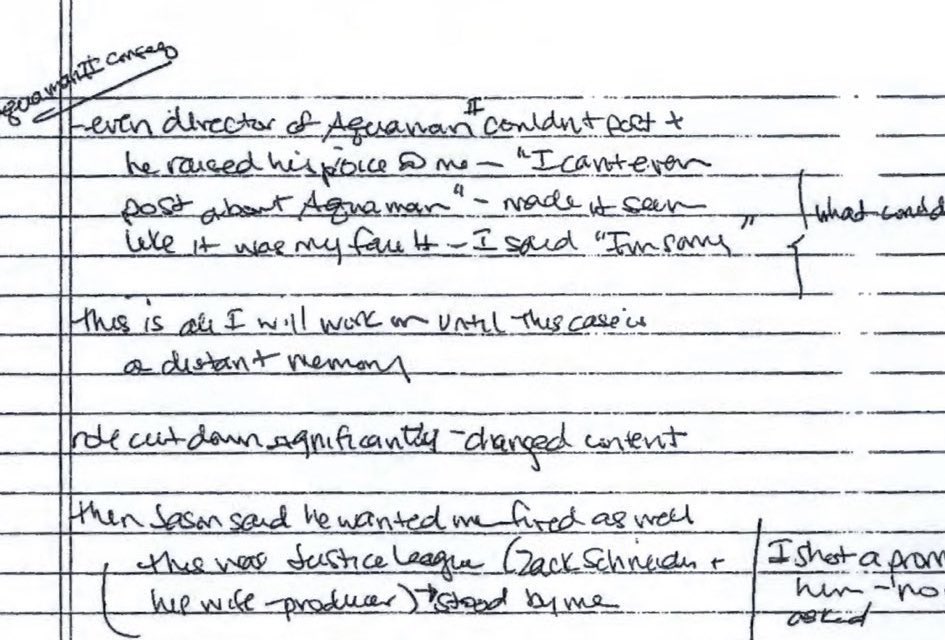 Aquaman II conseq
-even director of Aquaman II couldn't post +
he raised his voice @ me - "I can't even
post about Aquaman" - made it seem
like it was my fault - I said "I'm sorry"
what could
this is all I will work on until this case is
a distant memory
role cut down significantly - changed content
then Jason said he wanted me fired as well
this was Justice League (Zack Schneider +
his wife - producer) → stood by me
I shot a prom
him - no
asked